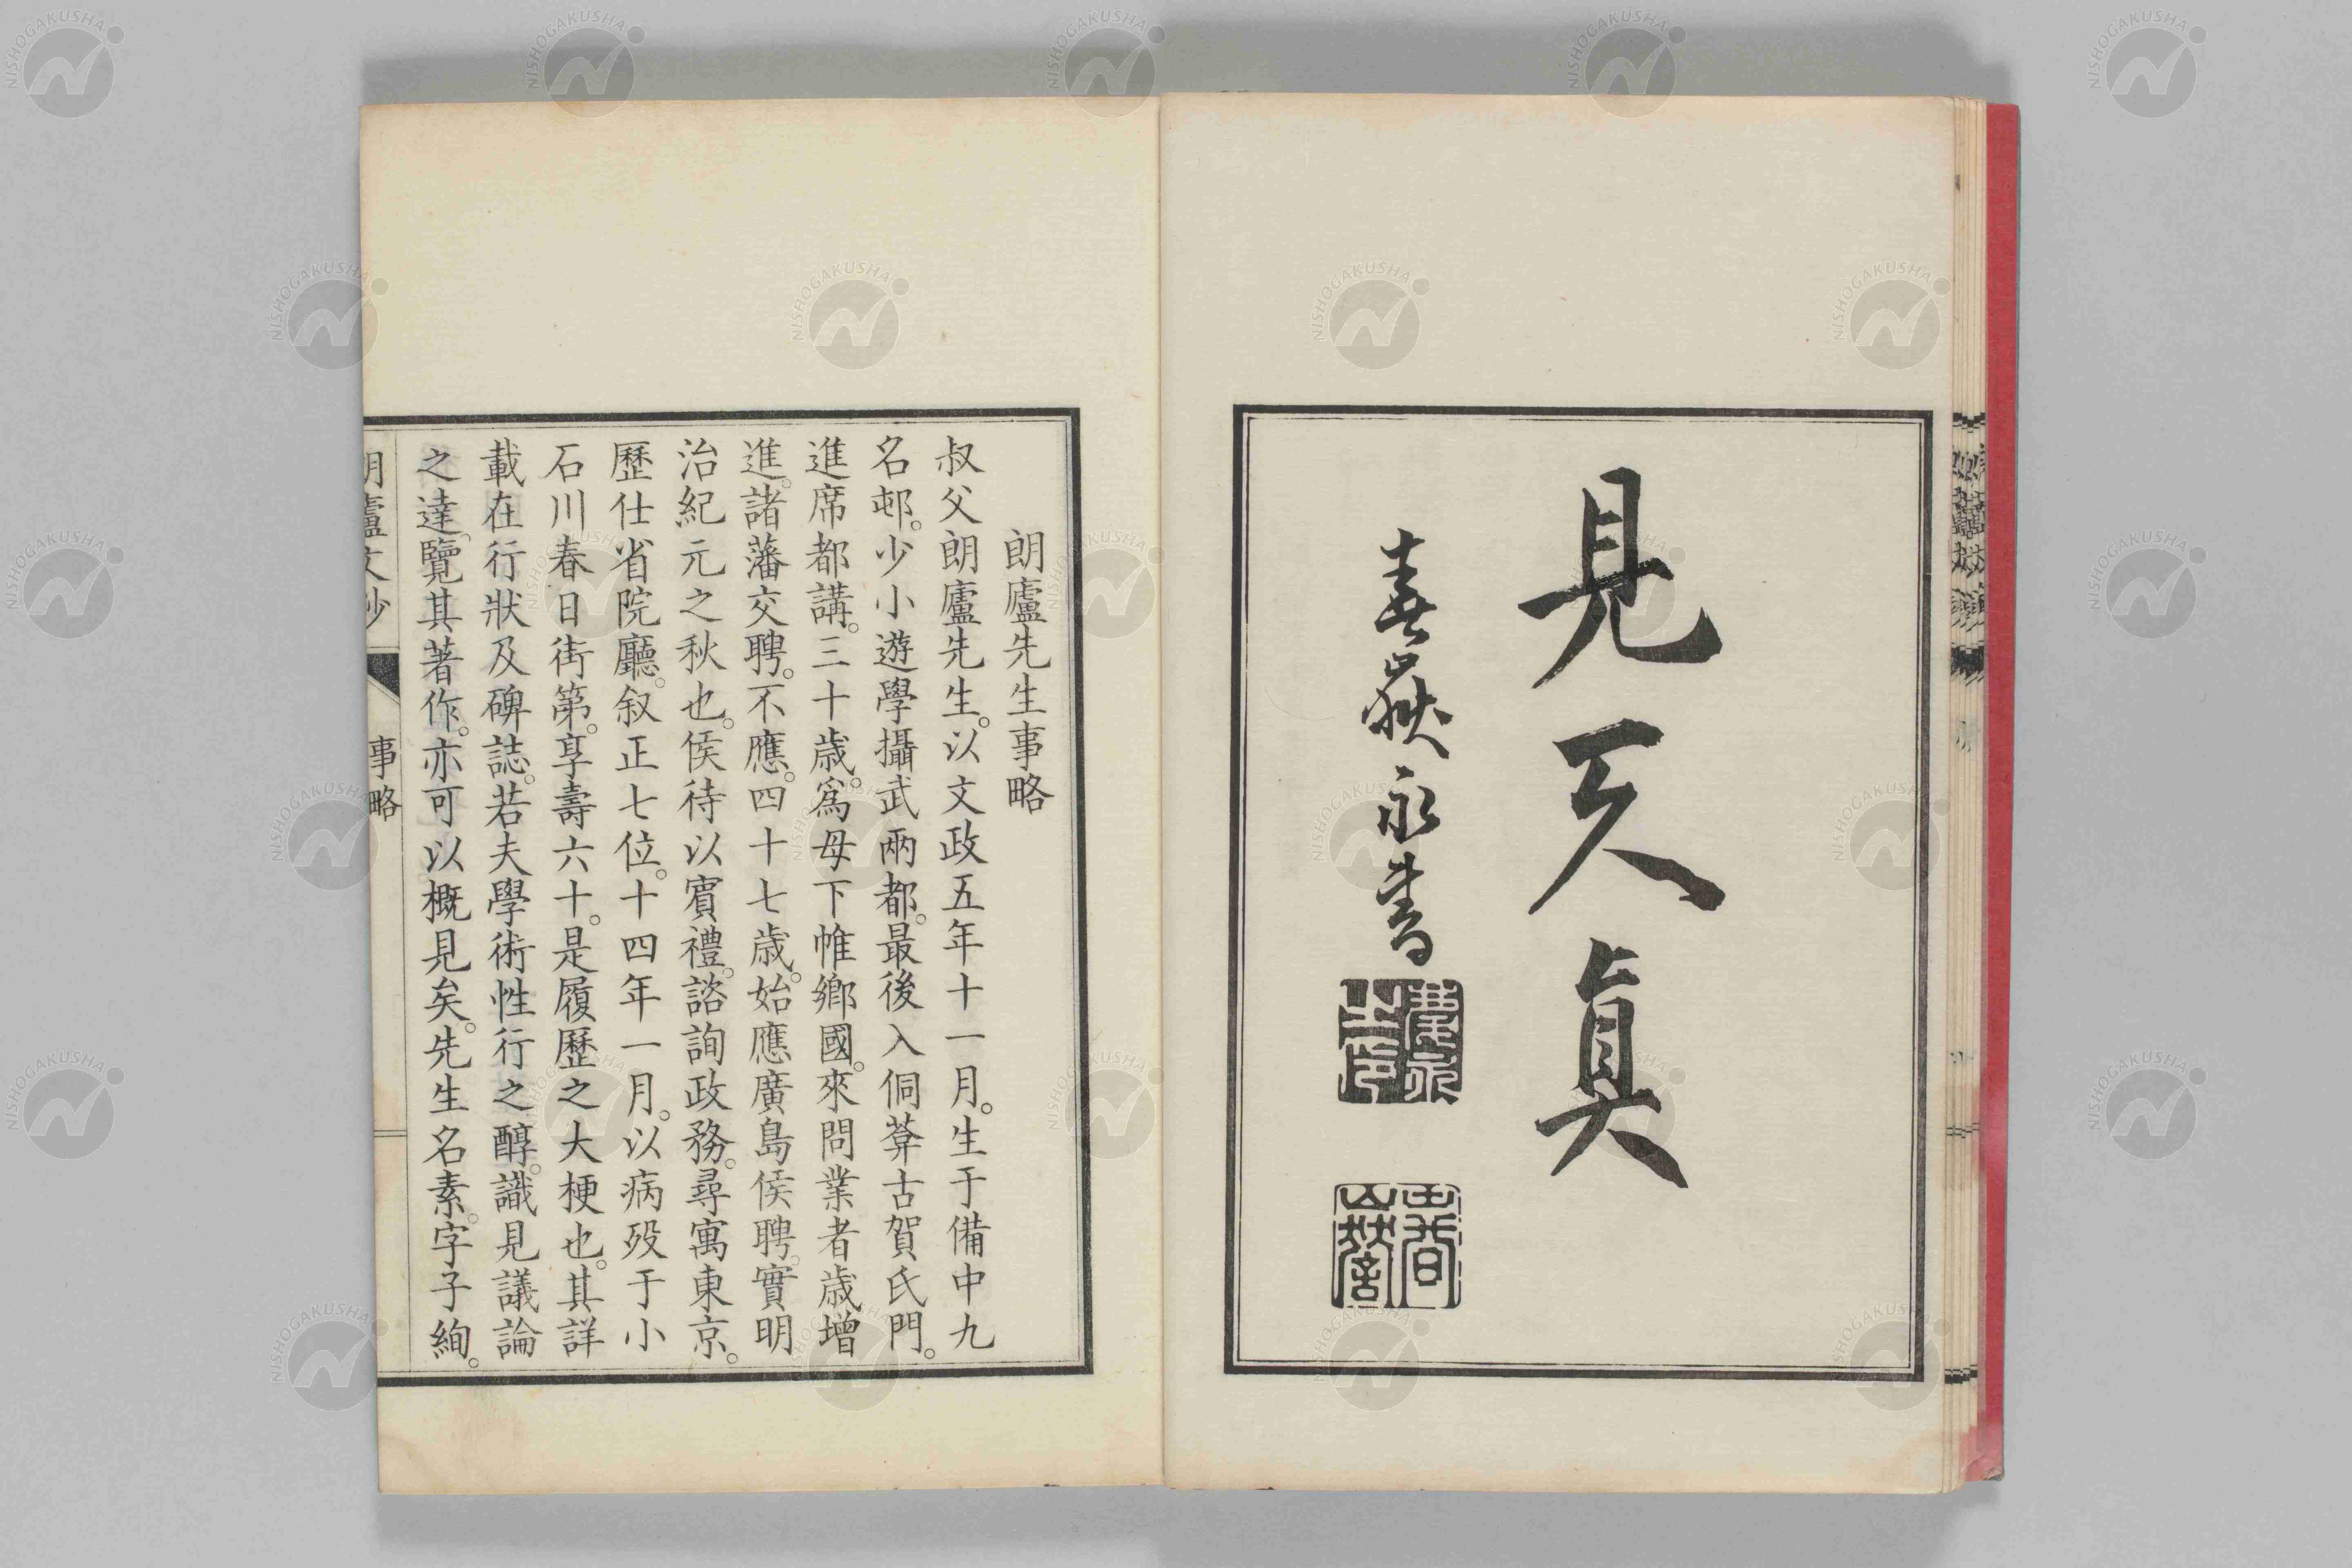 見天真
春嶽永書
朗廬先生事略
叔父朗廬先生。以文政五年十一月。生于備中九
名邨。少小遊學攝武兩都。最後入侗葊古賀氏門。
進席都講。三十歳。爲母下帷鄉國。來問業者歳增
進。諸藩交聘。不應。四十七歳。始應廣島侯聘。實明
治紀元之秋也。侯待以賓禮。諮詢政務。尋寓東京。
歷仕省院廳。叙正七位。十四年一月。以病歿于小
石川春日街第。享壽六十。是履歷之大梗也。其詳
載在行狀及碑誌。若夫學術性行之醇。識見議論
之達。覽其著作。亦可以概見矣。先生名素。字子絢。
朗廬文鈔
事略
NISHOGAKUSHA